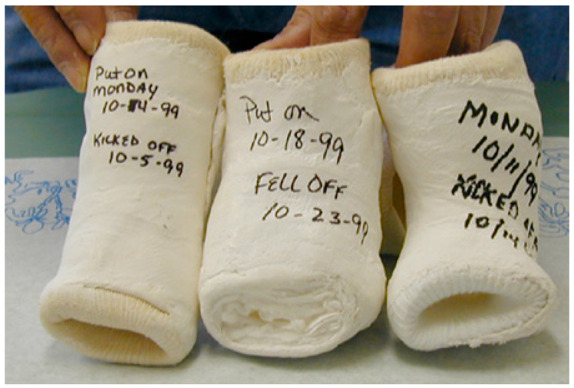 Put on
monday
10-4-99
KICKED OFF
10-5-99
Put on
10-18-99
FELL OFF
10-23-99
MONDA
10/11/99
KICKED
10/